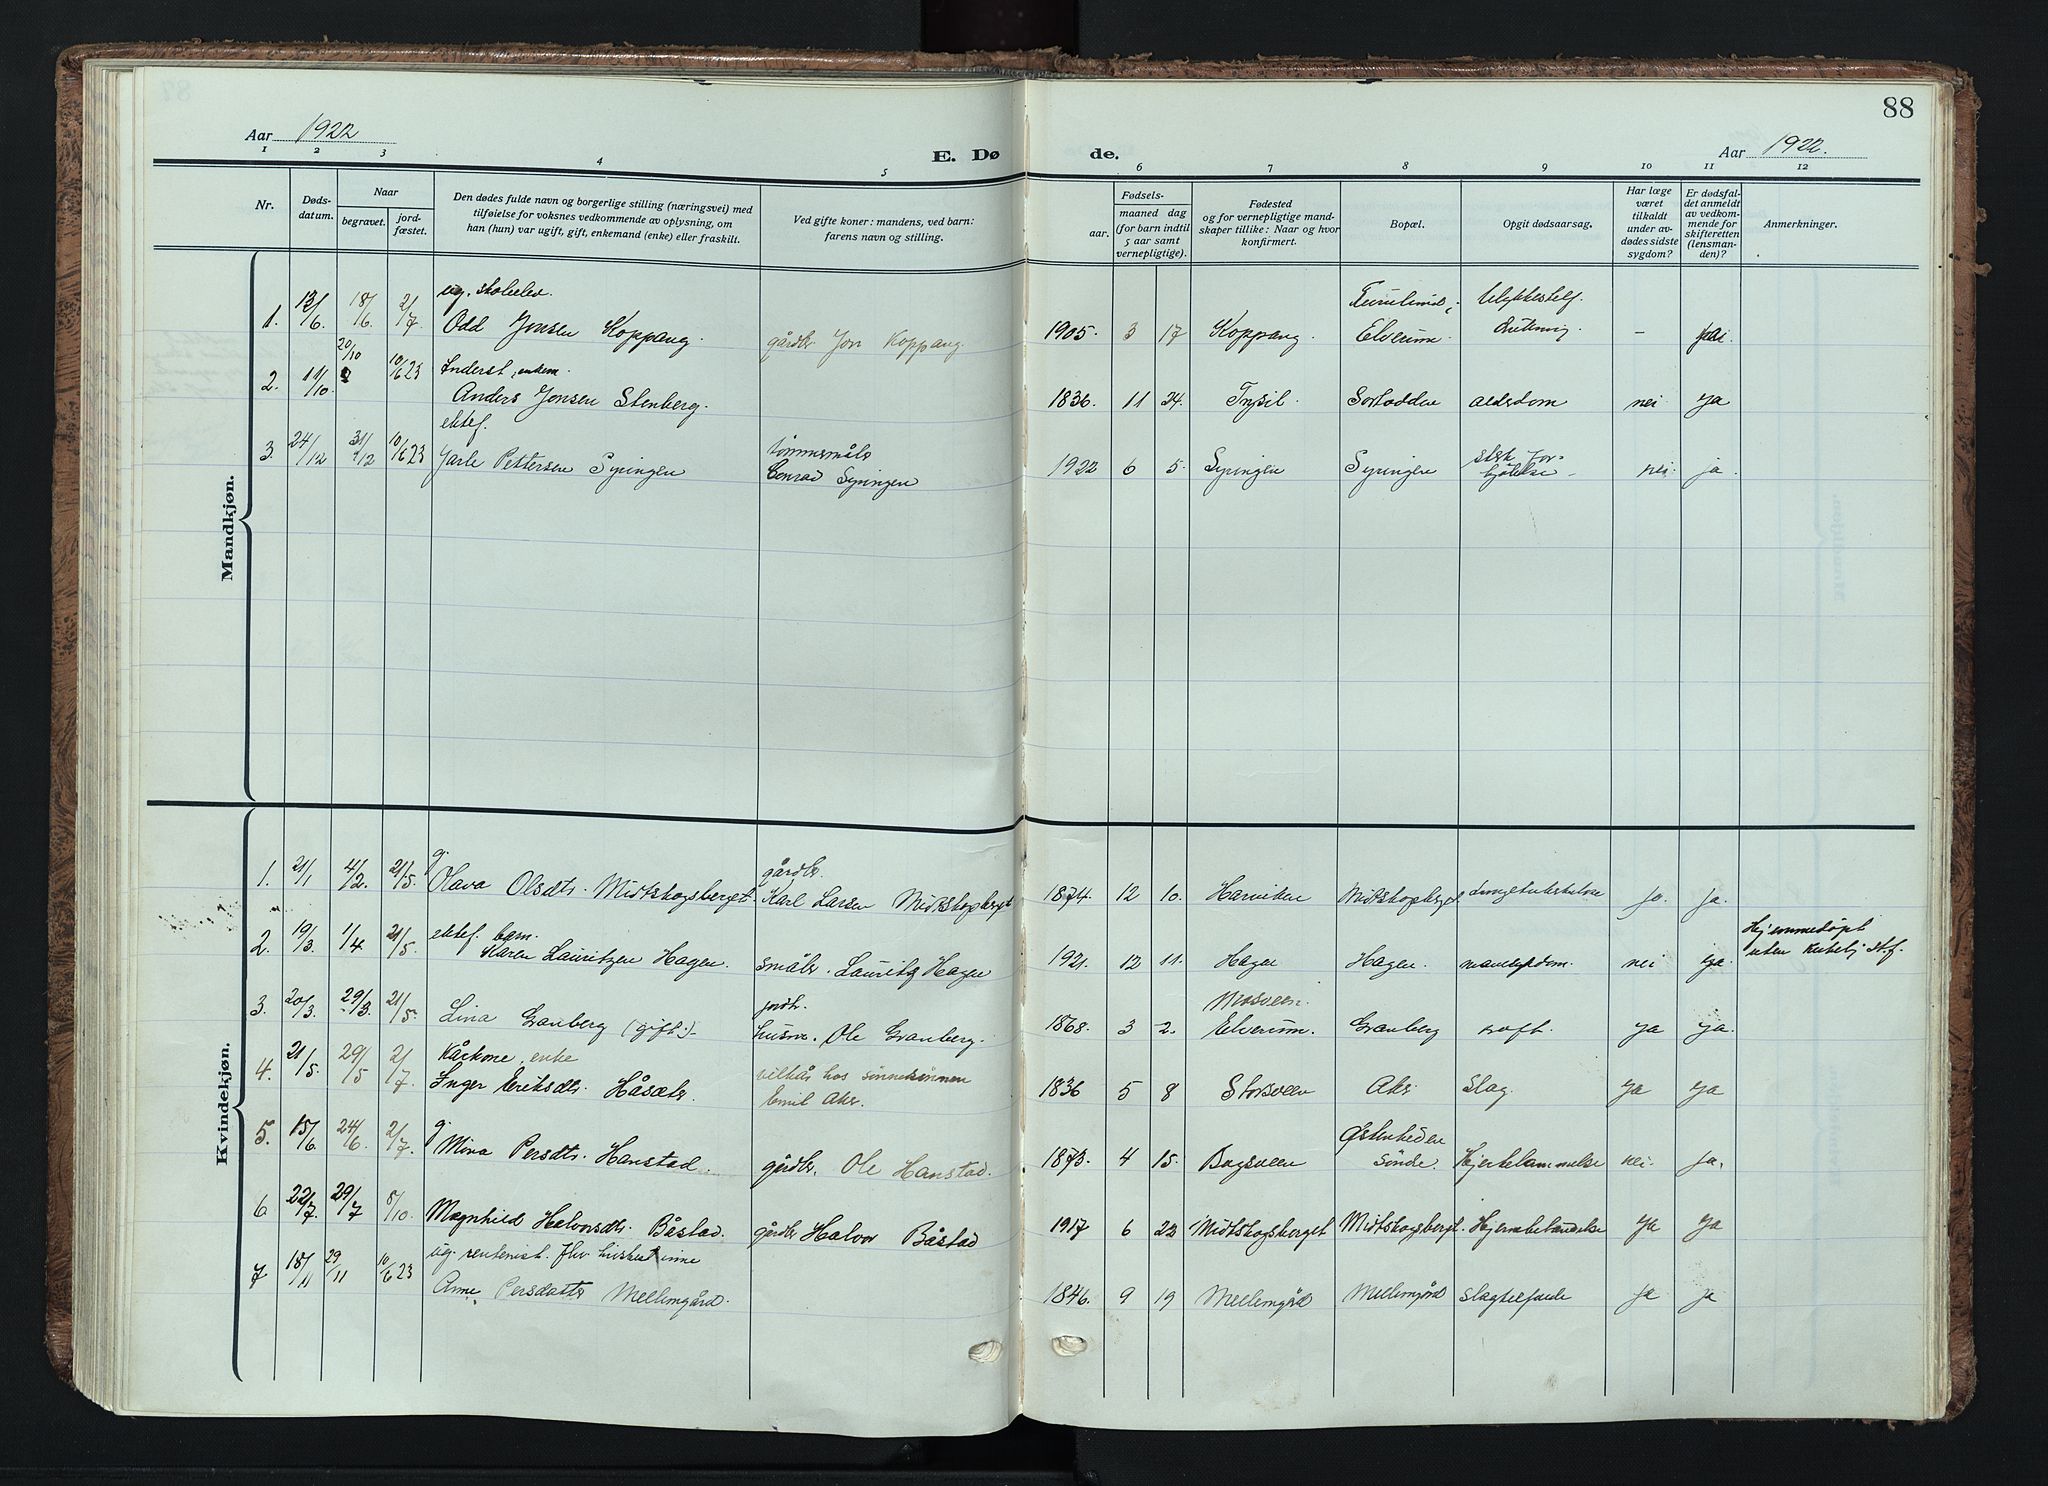 88
Aar 1922
E. Dø
de.
Aar 1922.
1 2 3 4 5 6 7 8 9 10 11 12
Nr.
Døds-
datum.
Naar
begravet.
jord-
fæstet.
Den dødes fulde navn og borgerlige stilling (næringsvei) med
tilføielse for voksnes vedkommende av oplysning, om
han (hun) var ugift, gift, enkemand (enke) eller fraskilt.
Ved gifte koner: mandens, ved barn:
farens navn og stilling.
Fødsels-
aar.
maaned dag
(for barn indtil
5 aar samt
vernepligtige).
Fødested
og for vernepligtige mand-
skaper tillike: Naar og hvor
konfirmert.
Bopæl.
Opgit dødsaarsag.
Har læge
været
tilkaldt
under av-
dødes sidste
sygdom?
Er dødsfal-
det anmeldt
av vedkom-
mende for
skifteretten
(lensman-
den)?
Anmerkninger.
Mandkjøn.
ug. skoleelev.
1. 13/6 18/6 2/7 Odd Jonsen Koppang. gårdbr Jon Koppang. 1905. 3 17 Koppang. Elverum. Ulykkestilf. drukning. – ja.
Inderst, enkem.
2. 11/10 20/10 10/6 23 Anders Jonsen Stenberg. 1836. 11 24. Trysil. alderdom nei ja
ektef.
3. 24/12 31/12 10/6 23 Jarle Pettersen Syringen tømmermåler Conrad Syringen 1922 6 5. Syringen Syringen stærk for-
kjølelse nei ja.
Kvindekjøn.
1. 21/1 4/2. 21/5. g. Olava Olsdtr. Midtskogsberget gårdbr. Karl Larsen Midtskogsberget 1874. 12 10. Midtskogsberget ja. ja.
ektef. barn.
2. 19/3. 1/4 21/5. Karen Lauritzen Hagen. småbr. Lauritz Hagen 1921. 12 11. Hagen Hagen. nei ja. Hjemmedøpt
uten
3. 20/3. 29/3. 21/5. Lina Granberg (gift.) jordbr. husm. Ole Granberg. 1868. 3 2. Mosveen.
Elverum. Granberg kræft. ja ja.
Kårkone, enke
4. 21/5. 29/5 2/7 Inger Eriksdtr. Håsæter. vilkår hos sønnesønnen
Emil Aker. 1836 5 8 Storsveen Aker Slag. ja ja
5. 15/6 24/6. 2/7. g. Mina Persdtr. Hanstad. gårdbr. Ole Hanstad. 1873. 4 15. Bagsveen Østenheden
søndre. Hjertelammelse nei. ja.
6. 22/7. 29/7 8/10. Magnhild Halvorsdtr. Båstad. gårdbr Halvor Båstad 1917 6 22 Midtskogsberget Midtskogsberget. Hjernebetændelse ja ja
ug. rentenist. fhv. huskvinne
7 18/11 29/11 10/6 23 Anne Persdatter Mellemgård. 1846. 9 19 Mellemgård Mellemgård slagtilfælde ja ja